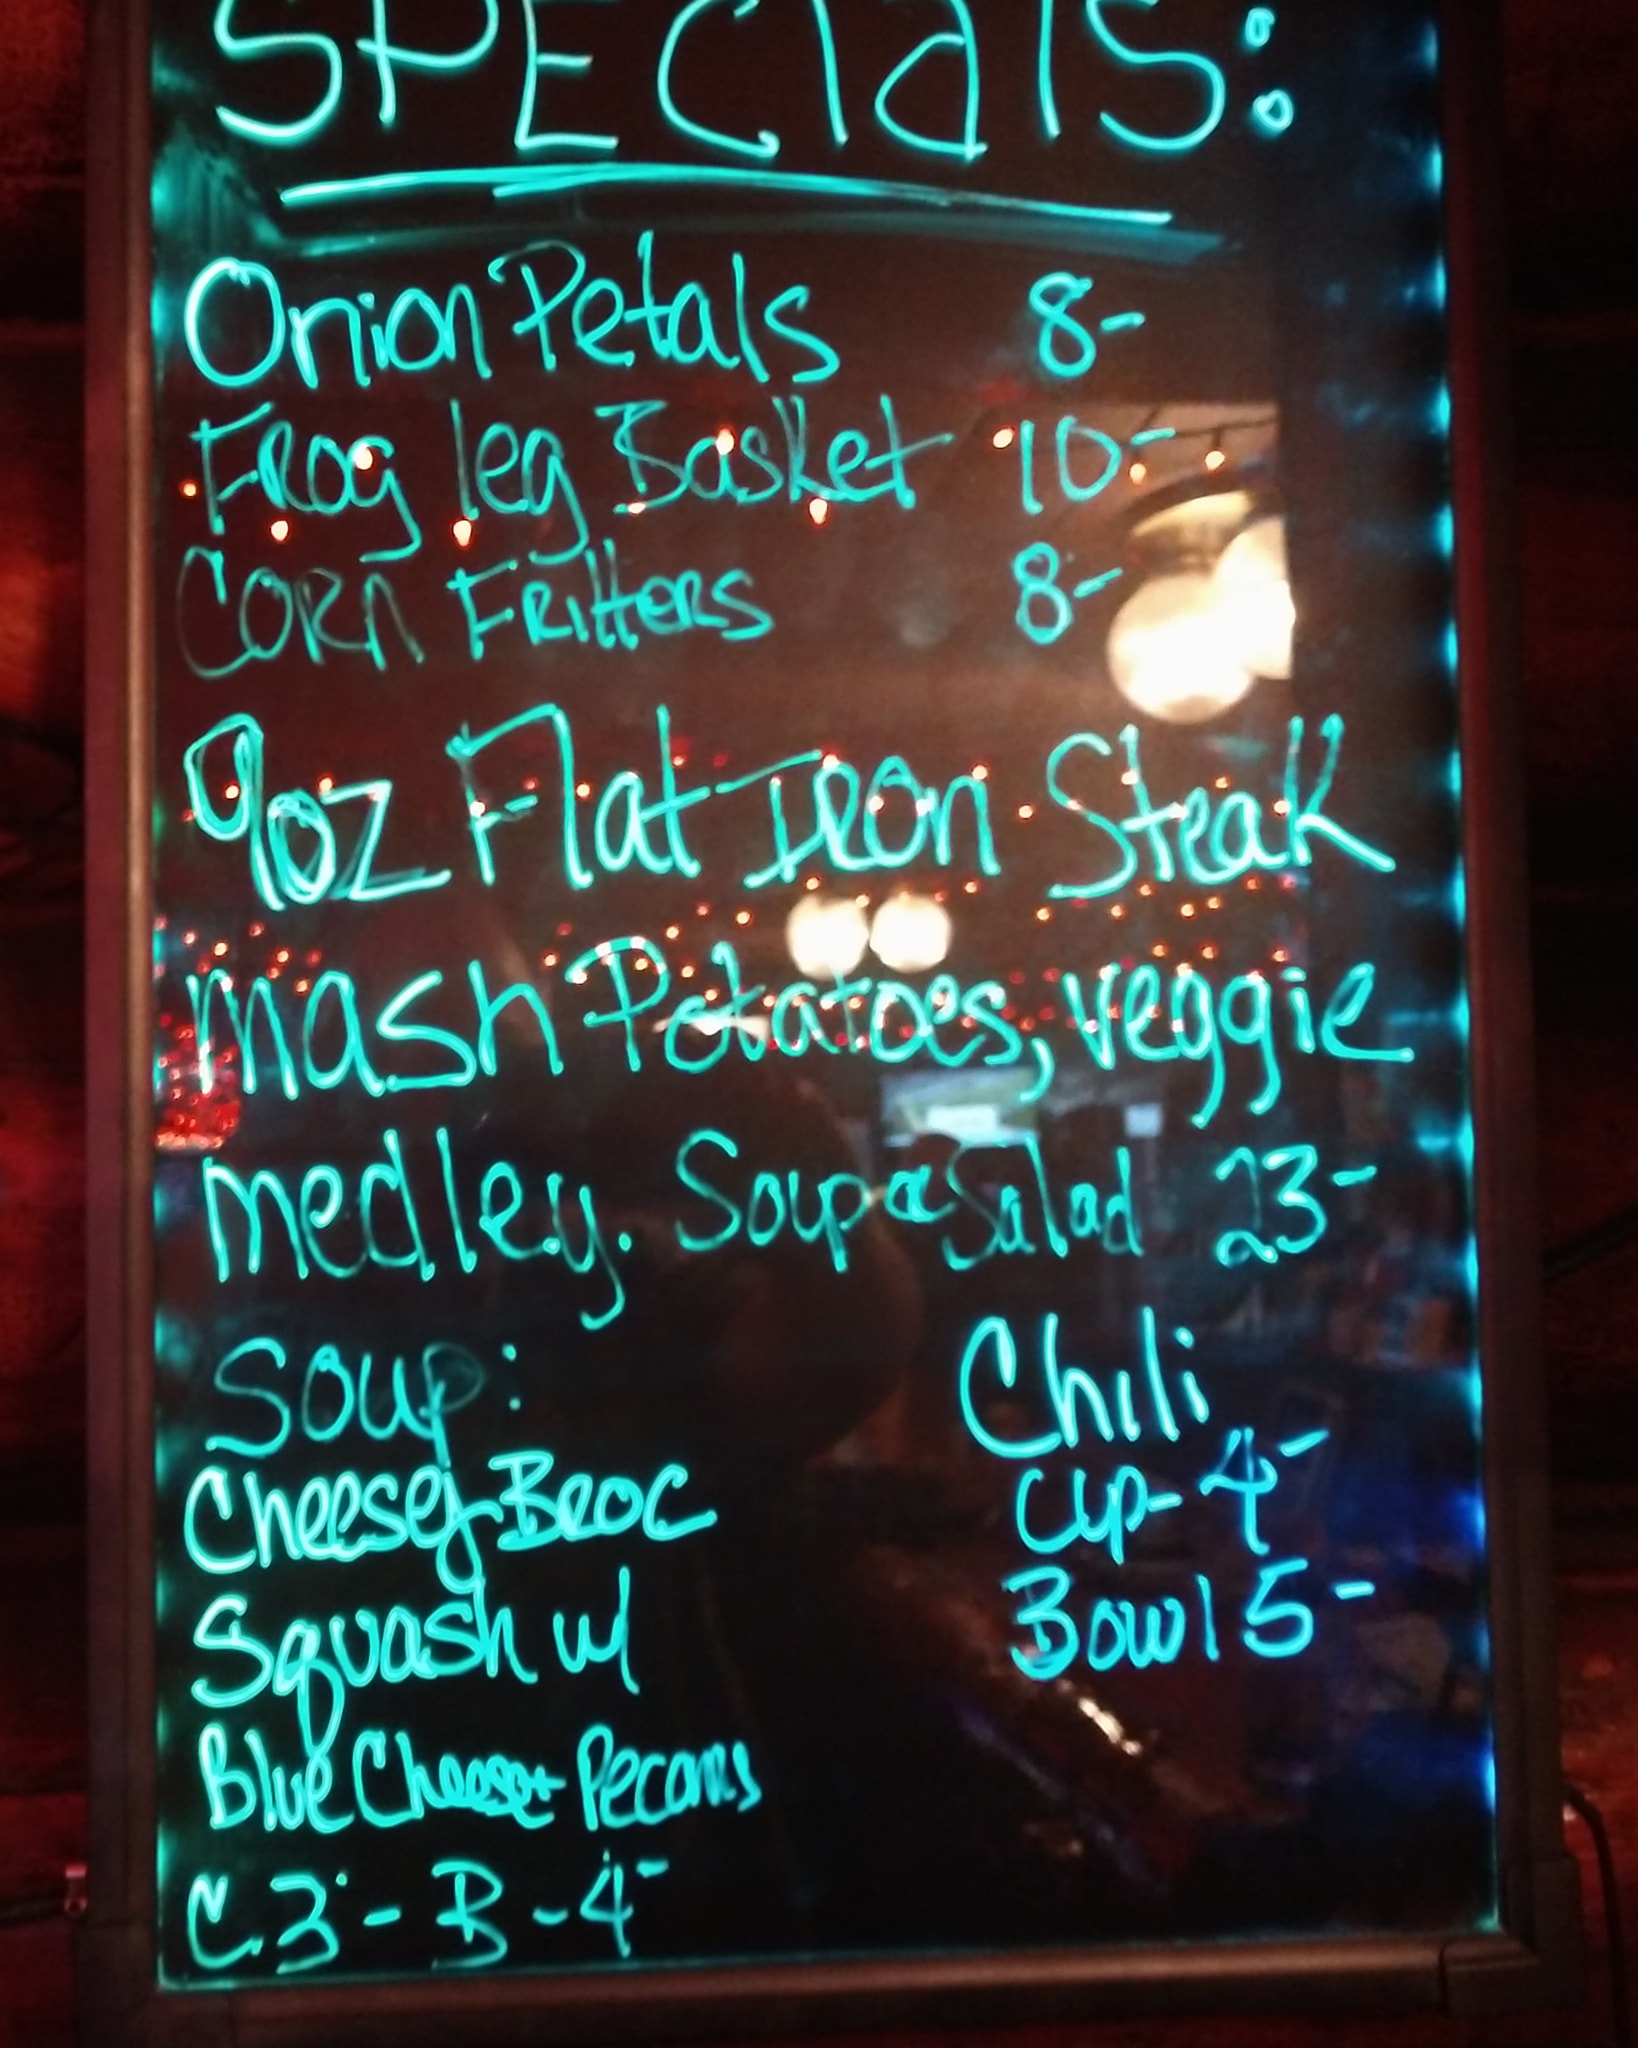 SPECIALS:
Onion Petals 8-
Frog leg Basket 10-
Corn Fritters 8-
9oz Flat Iron Steak
Mash Potatoes, veggie
medley. Soup or Salad 23-
Soup:
Cheesey Broc
Squash w/
Blue Cheese + Pecans
C.3 - B - 4-
Chili
Cup - 4-
Bowl 5-